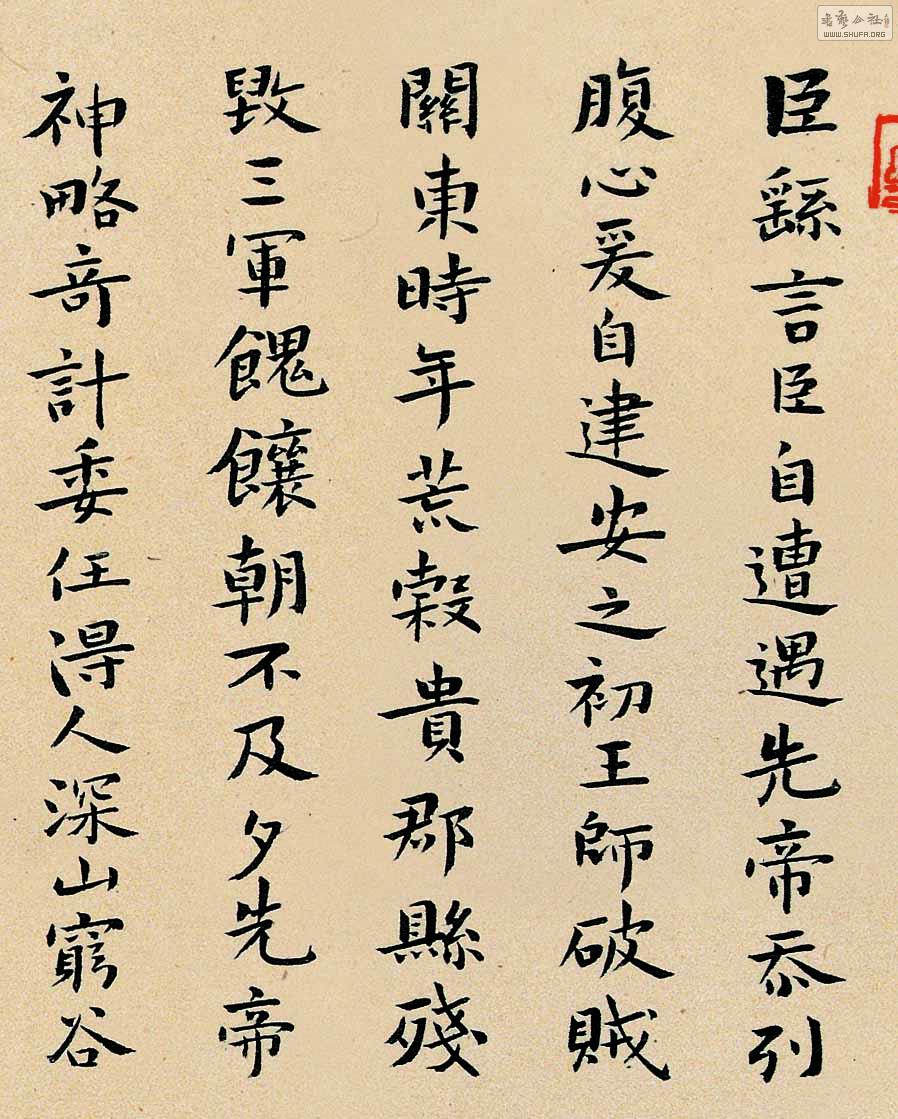 臣繇言臣自遭遇先帝忝列
腹心爰自建安之初王師破賊
關東時年荒穀貴郡縣殘
毀三軍餽饟朝不及夕先帝
神略奇計委任得人深山窮谷
书艺公社
WWW.SHUFA.ORG